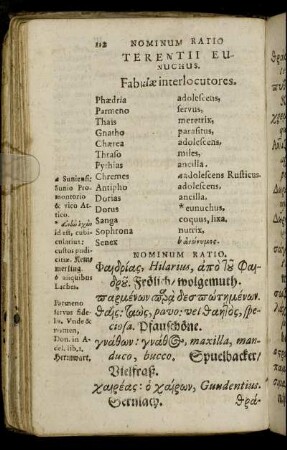 112 NOMINUM RATIO
TERENTII EU-
NUCHUS.
Fabulæ interlocutores.
Phædria adolescens,
Parmeno servus,
Thais meretrix,
Gnatho parasitus,
Chærea adolescens,
Thraso miles,
Pythias ancilla.
Chremes adolescens Rusticus.
Antipho adolescens.
Dorias ancilla.
Dorus * eunuchus,
Sanga coquus, lixa,
Sophrona nutrix,
Senex
a Suniensis
Sunio Pro
montorio
& vico At-
tico.
id est, cubi-
cularius:
custos pudi-
citiæ.
ô aliquibus
Laches.
Parmeno
servus fide
lis, Vnde &
nomen,
Don. in A-
del.
NOMINUM RATIO.
Φαιδρίας, Hilarius, ἀπὸ τȣ͂ Φαι-
δρȣ͂. Frölich/wolgemuth.
παρμένων
speciosa. Pfauschöne.
γνάθων: γνάθος, maxilla, man-
duco, bucco, Spuelbacker/
Vielfraß.
χαιρέας: ὁ χαίρων, Gaudentius.
θρά-